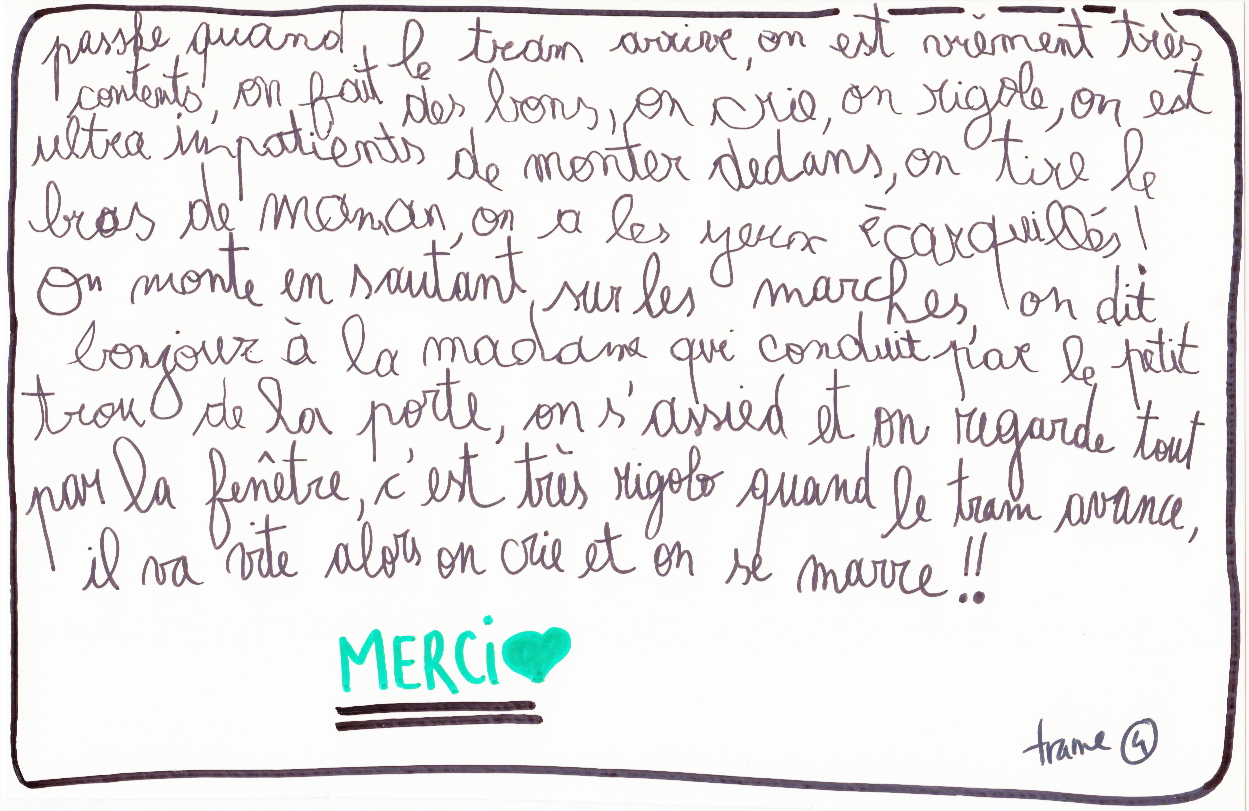 passke quand le tram arrive, on est vrèment très
contents, on fait des bons, on crie, on rigole, on est
ultra impatients de monter dedans, on tire le
bras de maman, on a les yeux écarquillés !
On monte en sautant sur les marches, on dit
bonjour à la madame qui conduit par le petit
trou de la porte, on s'assied et on regarde tout
par la fenêtre, c'est très rigolo quand le tram avance,
il va vite alors on crie et on se marre !!
MERCi
trame 4